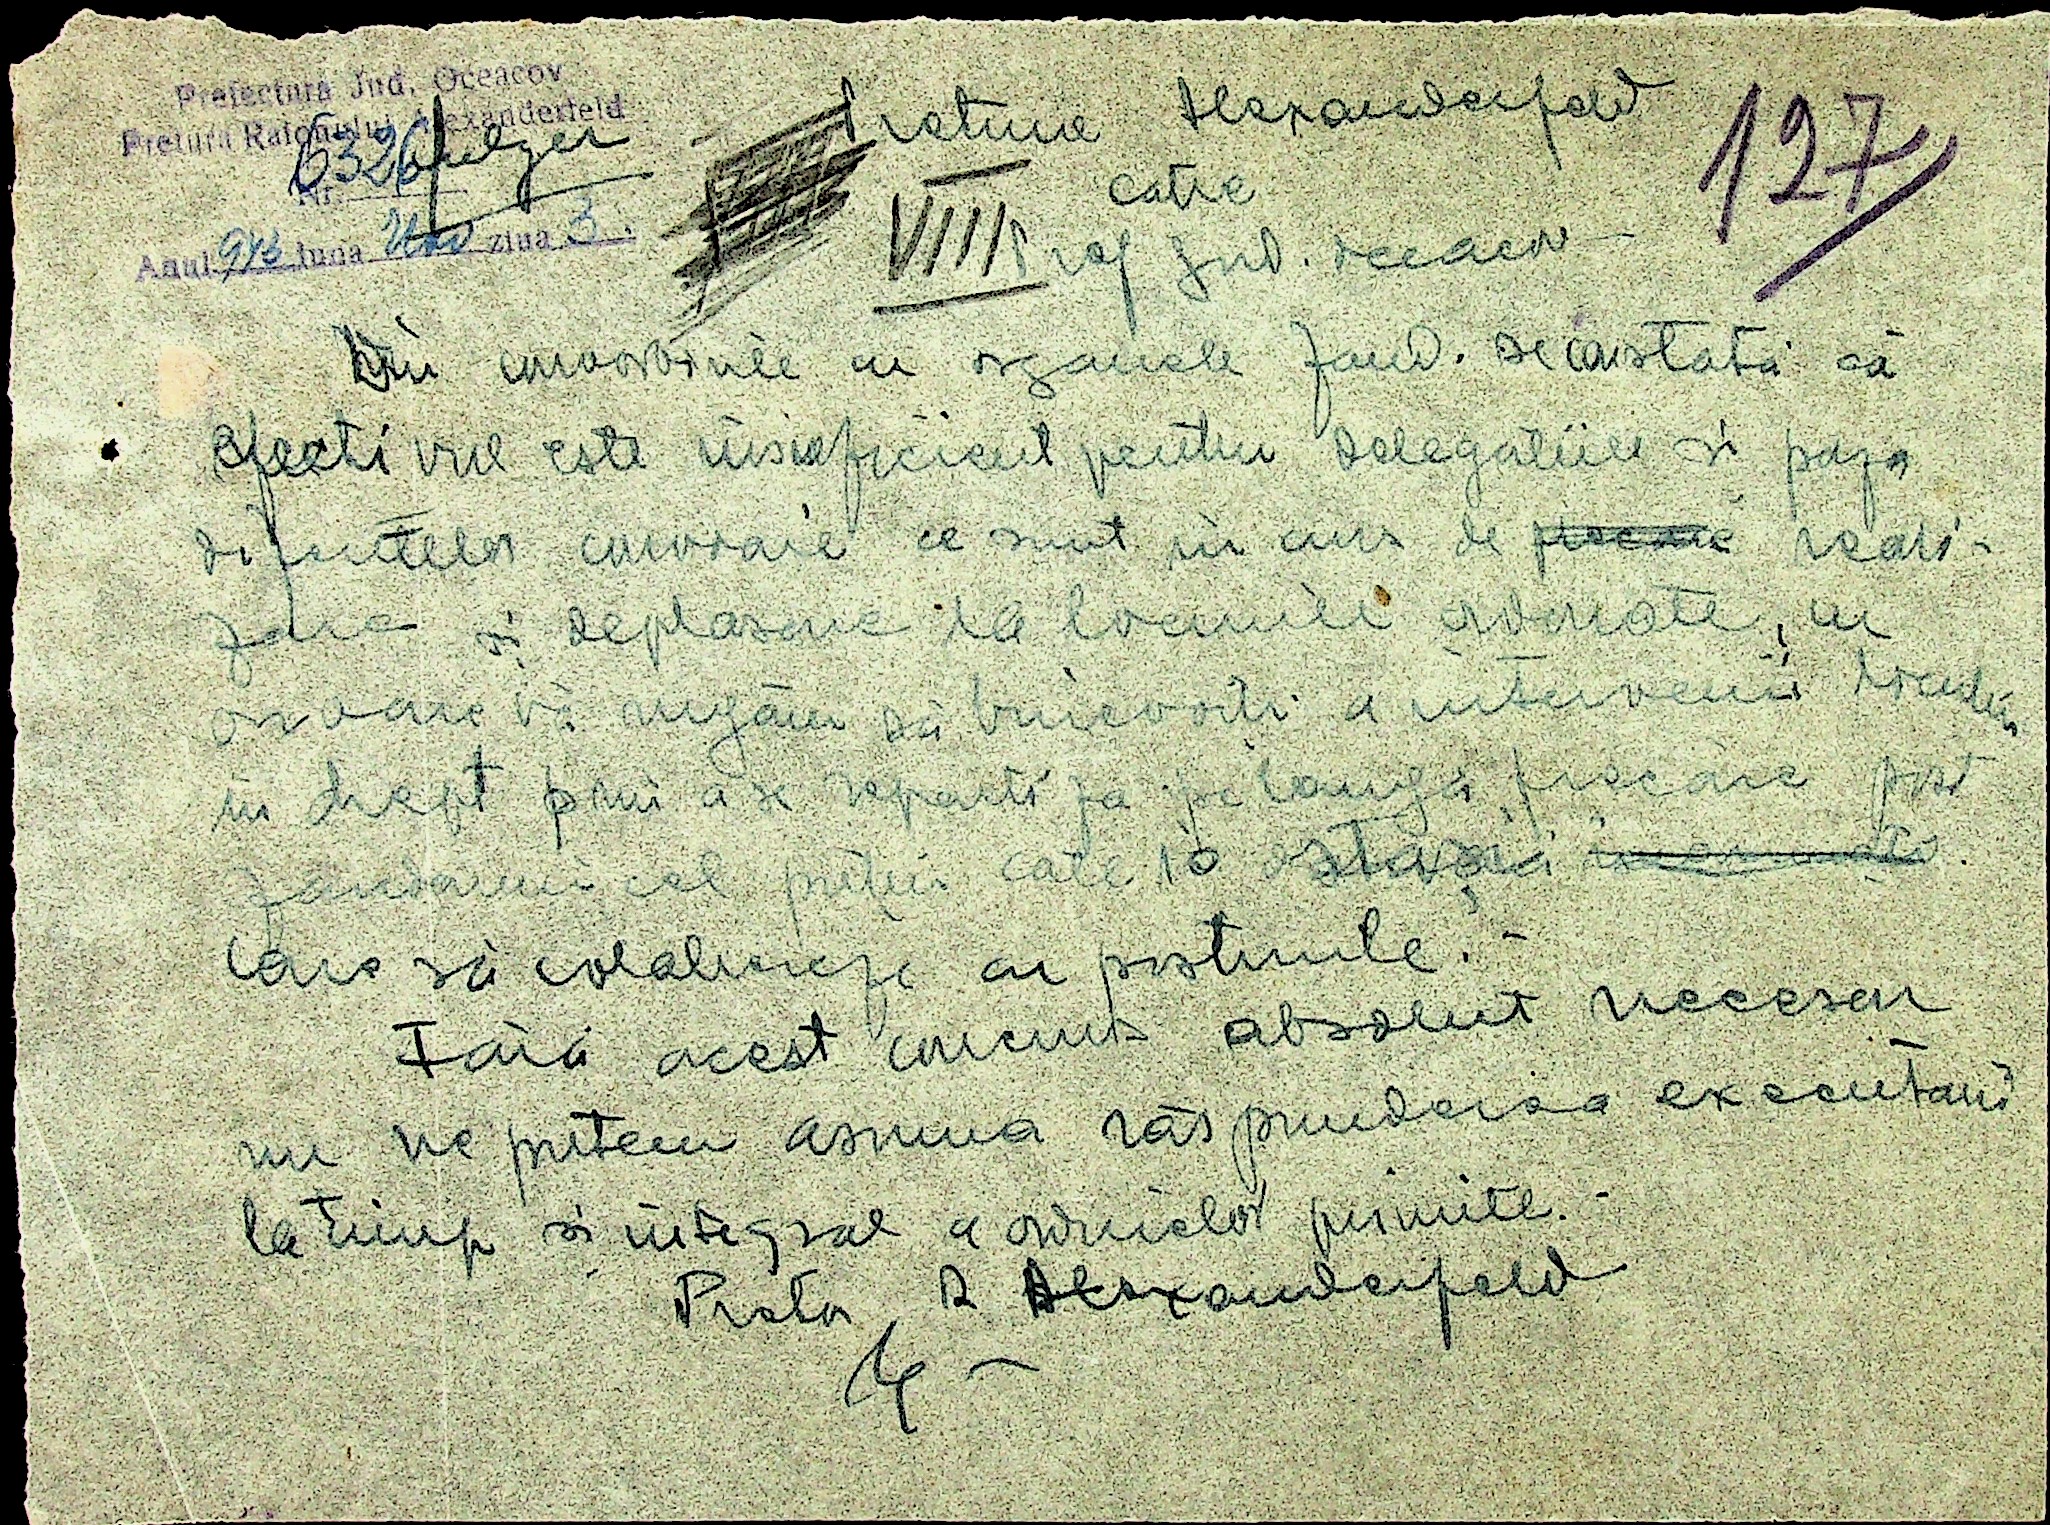 Prefectura Jud. Oceacov
Pretura Raionului Alexanderfeld
Nr. 6326
Anul 943 luna Nov ziua 3.
127
VIII
Pretura Alexanderfeld
catre
Pref Jud. Oceacov
Din convorbirile cu organele Jand. se constată că
efectivul este insuficient pentru delegațiile si paza
diferitelor convoaie ce sunt in curs de fiecare reali-
zare si deplasare la locurile ordonate, cu
onoare vă rugăm să binevoiti a interveni locului
in drept prin a se repartiza pe langă fiecare post
jandarmi cel puțin cate 10 ostași
care să colaboreze cu posturile.-
Fără acest concurs absolut necesar
nu ne putem asuma răspunderea executarii
la timp si integral a ordinelor primite.-
Pretor R Alexanderfeld